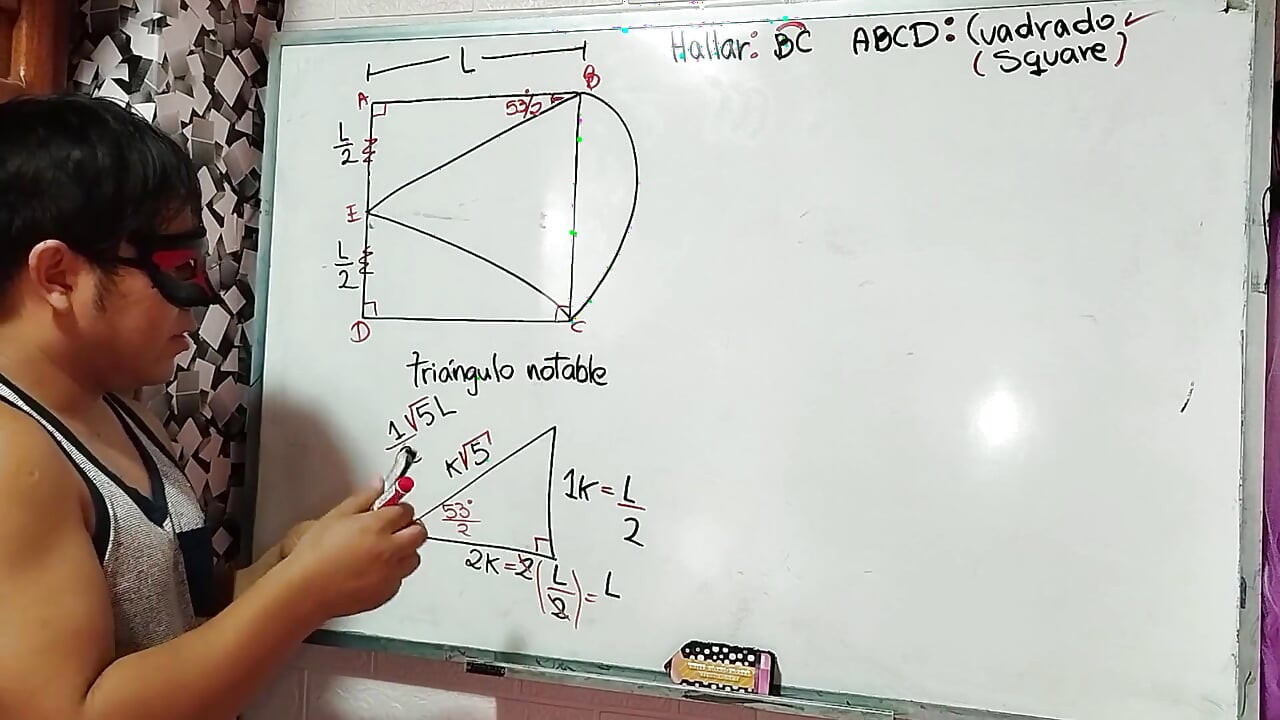 Hallar: BC ABCD: Cuadrado
(Square)
L
A
B
53°/2
L/2
E
L/2
D
C
triángulo notable
1√5L
K√5
53°/2
1K = L/2
2K = 2(L/2) = L